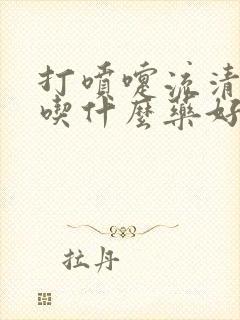 打噴嚏流清
喫什麼藥好
拉丹